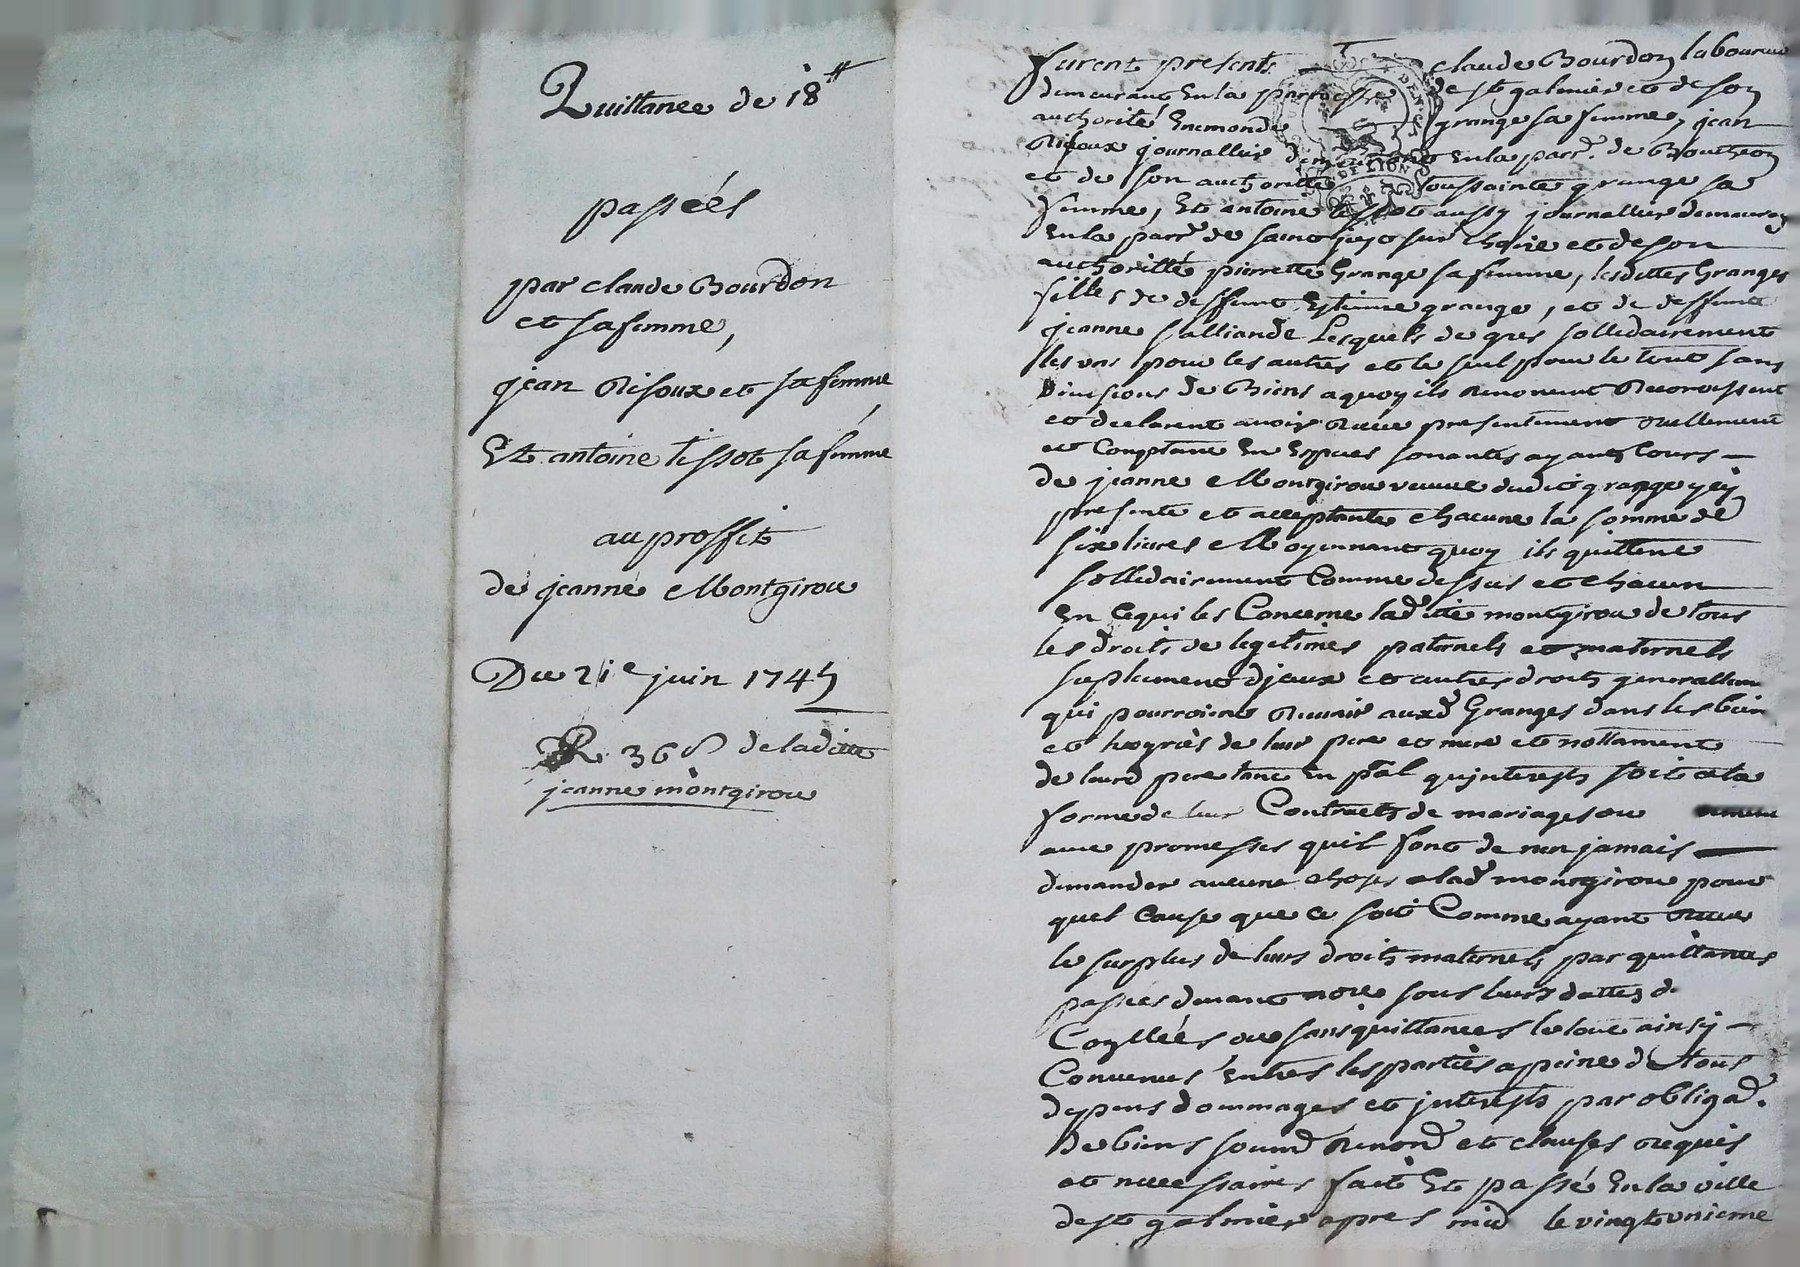 Quittance de 18 ₶
passées
par claude Bourdon
et sa femme,
jean Risoux et sa femme
Et antoine tissot sa femme
au proffit
de jeanne Montgirou
Du 21e juin 1745
R 36 s de laditte
jeanne montgirou
furent presents claude Bourdon laboureur
demeurant en la parroisse de st galmier et de son
authorité Enemonde grange sa femme, jean
Risoux journallier demeurant en la parr. de Boutheon
et de son authoritté toussainte grange sa
femme, Et antoine tissot aussy journallier demeurant
en la parr. de saint just sur Loire et de son
authoritté pierrette Grange sa femme, lesdittes Granges
filles de deffunt Estienne grange, et de deffunte
jeanne salliande Lesquels de gres sollidairement
les uns pour les autres et le seul pour le tout sans
Divisions de Biens a quoy ils renoncent Reconoissent
et declarent avoir Receu presentement reellement
et Comptant En Especes sonantes ayants Cours
de jeanne Montgirou veuve dudit grange icy
presente et acceptante chacune la somme de
six livres Moyennant quoy ils quittent
sollidairement Comme dessus et chacun
En Ce qui les Concerne lad. itte montgirou de tous
les droits de legitimes paternels et maternels
suplement d'jceux et autres droits generallem
qui pourroient Revenir auxd Granges dans les bien
et hoyries de leur pere et mere et nottament
de leurd pere tant En p.al qu'jnterests soit a la
forme de leur Contracts de mariages ou
avec promesses quil font de nen jamais
demander aucune choses a lad montgirou pour
quel Cause que ce soit Comme ayant receu
le surplus de leurs droits maternels par quittances
passées devant nore sous leurs dattes d
Coyllées ou sans quittances le tout ainsy
Convenus Entres les parties a peine de tous
depens dommages et jnterests par obligad.
De biens soumd Renond et clauses requis
et necessaires fait Et passé En la ville
de st galmier apres mid le vingt unieme